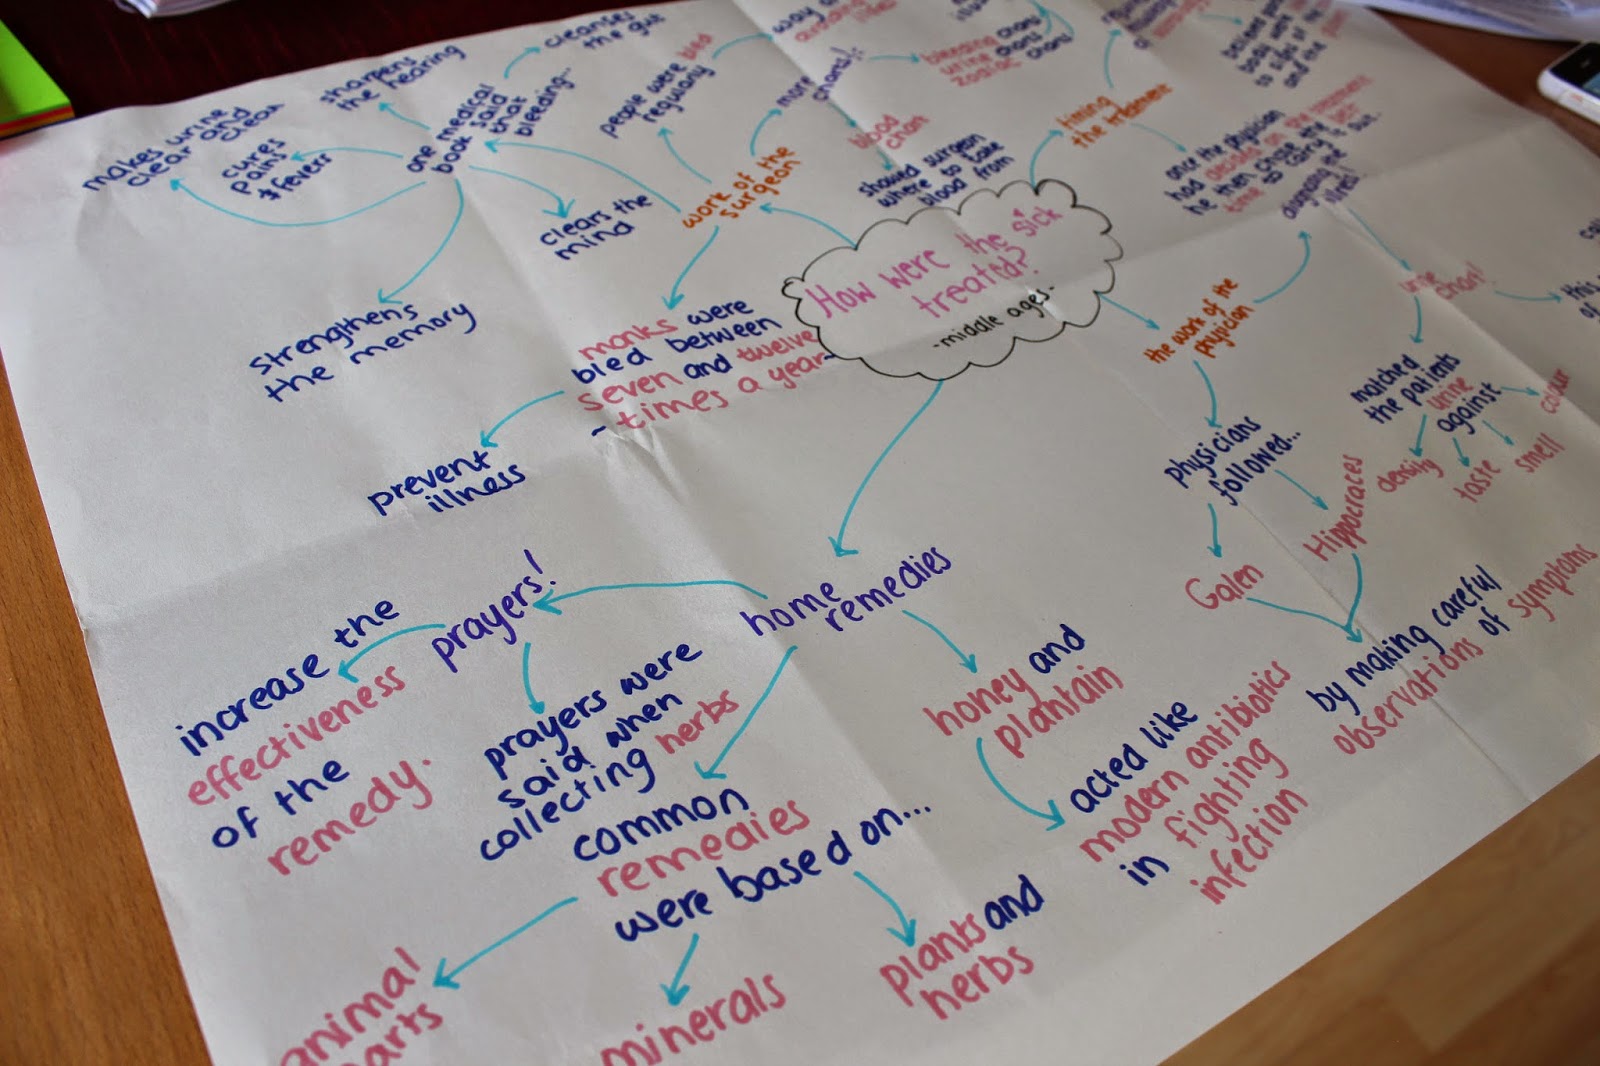 How were the sick
treated?
- middle ages -
work of the
surgeon
one medical
book said
that
bleeding...
cleanses
the gut
sharpens
the hearing
makes urine
clear and
clean
cures
pains
& fevers
strengthens
the memory
clears the
mind
people were bled
regularly
more
charts!
bleeding charts
urine charts
zodiac charts
blood
chart
showed surgeon
where to take
blood from
monks were
bled between
seven and twelve
~ times a year ~
prevent
illness
timing
the treatment
once the physician
had decided on the treatment
he then chose the best
time to carry it out.
the work of the
physician
physicians
followed...
Galen
Hippocraces
by making careful
observations of symptoms
urine
chart!
matched
the patients
urine
against
density
taste
smell
colour
this
of
home
remedies
prayers!
increase the
effectiveness
of the
remedy.
prayers were
said when
collecting herbs
common
remedies
were based on...
animal
parts
minerals
plants and
herbs
honey and
plantain
acted like
modern antibiotics
in fighting
infection